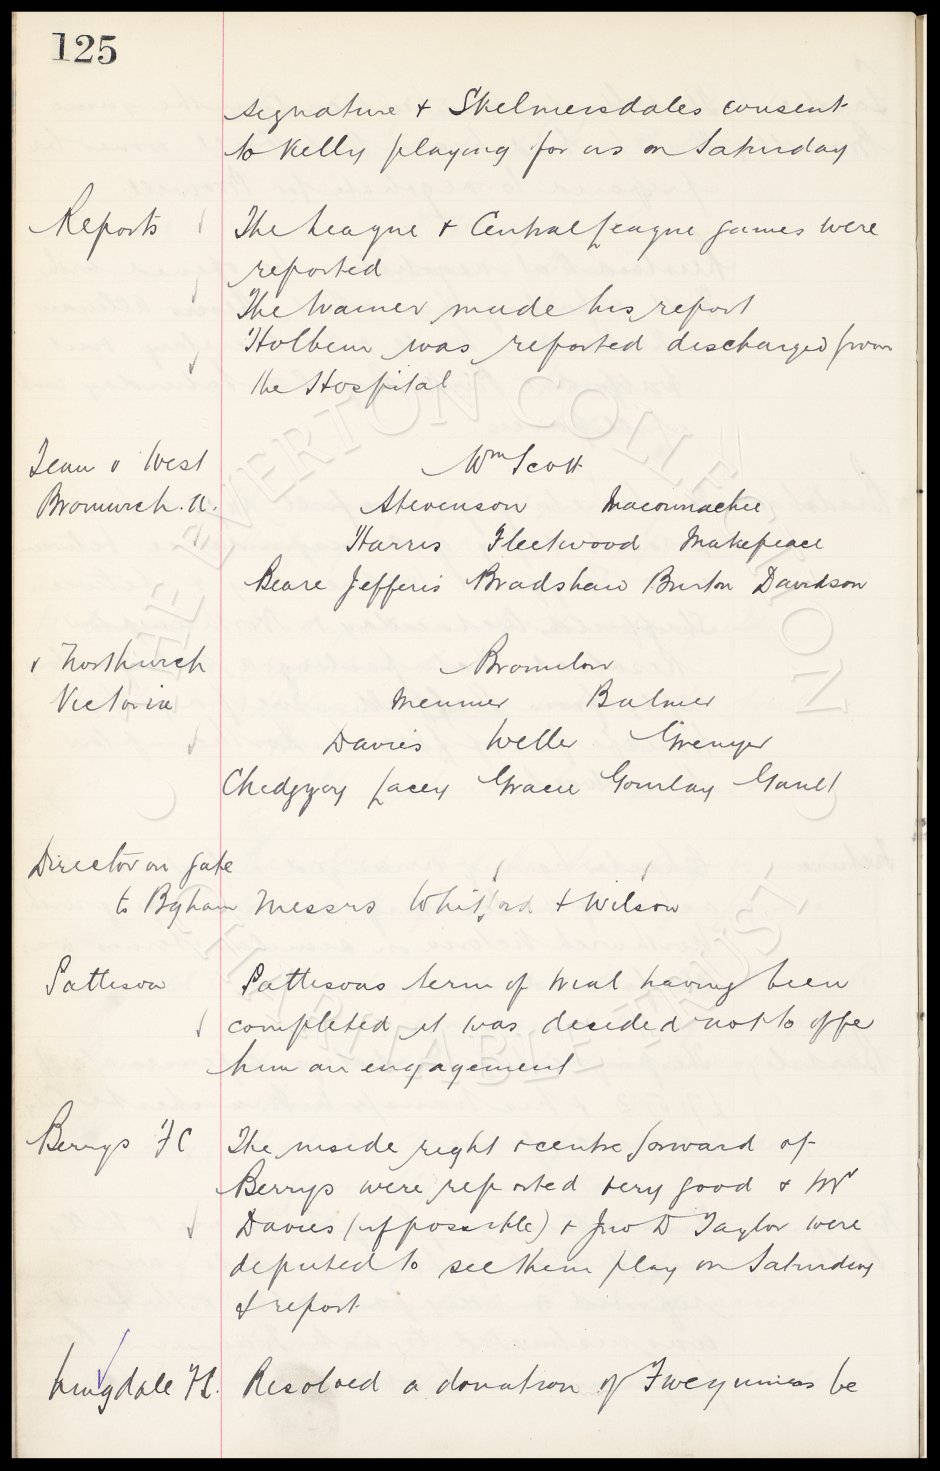 125
signature & Skelmersdales consent
to Kelly playing for us on Saturday
Reports The League & Central League games were
reported
The trainer made his report
Holbem was reported discharged from
the Hospital
Team v West Wm Scott
Bromwich. A. Stevenson Maconnachie
Harris Fleetwood Makepeace
Beare Jefferis Bradshaw Burton Davidson
v Northwich Bromilow
Victoria Meunier Balmer
Davies Weller Grenyer
Chedgzoy Lacey Gracie Gourlay Gault
Director on gate
to Bgham Messrs Whitford & Wilson
Pattison Pattisons term of trial having been
completed it was decided not to offer
him an engagement
Berrys FC The inside right & centre forward of
Berrys were reported very good & Mr
Davies (if possible) & Jno D Taylor were
deputed to see them play on Saturday
& report
Kingdale FC. Resolved a donation of Two guineas be
THE EVERTON COLLECTION
CHARITABLE TRUST